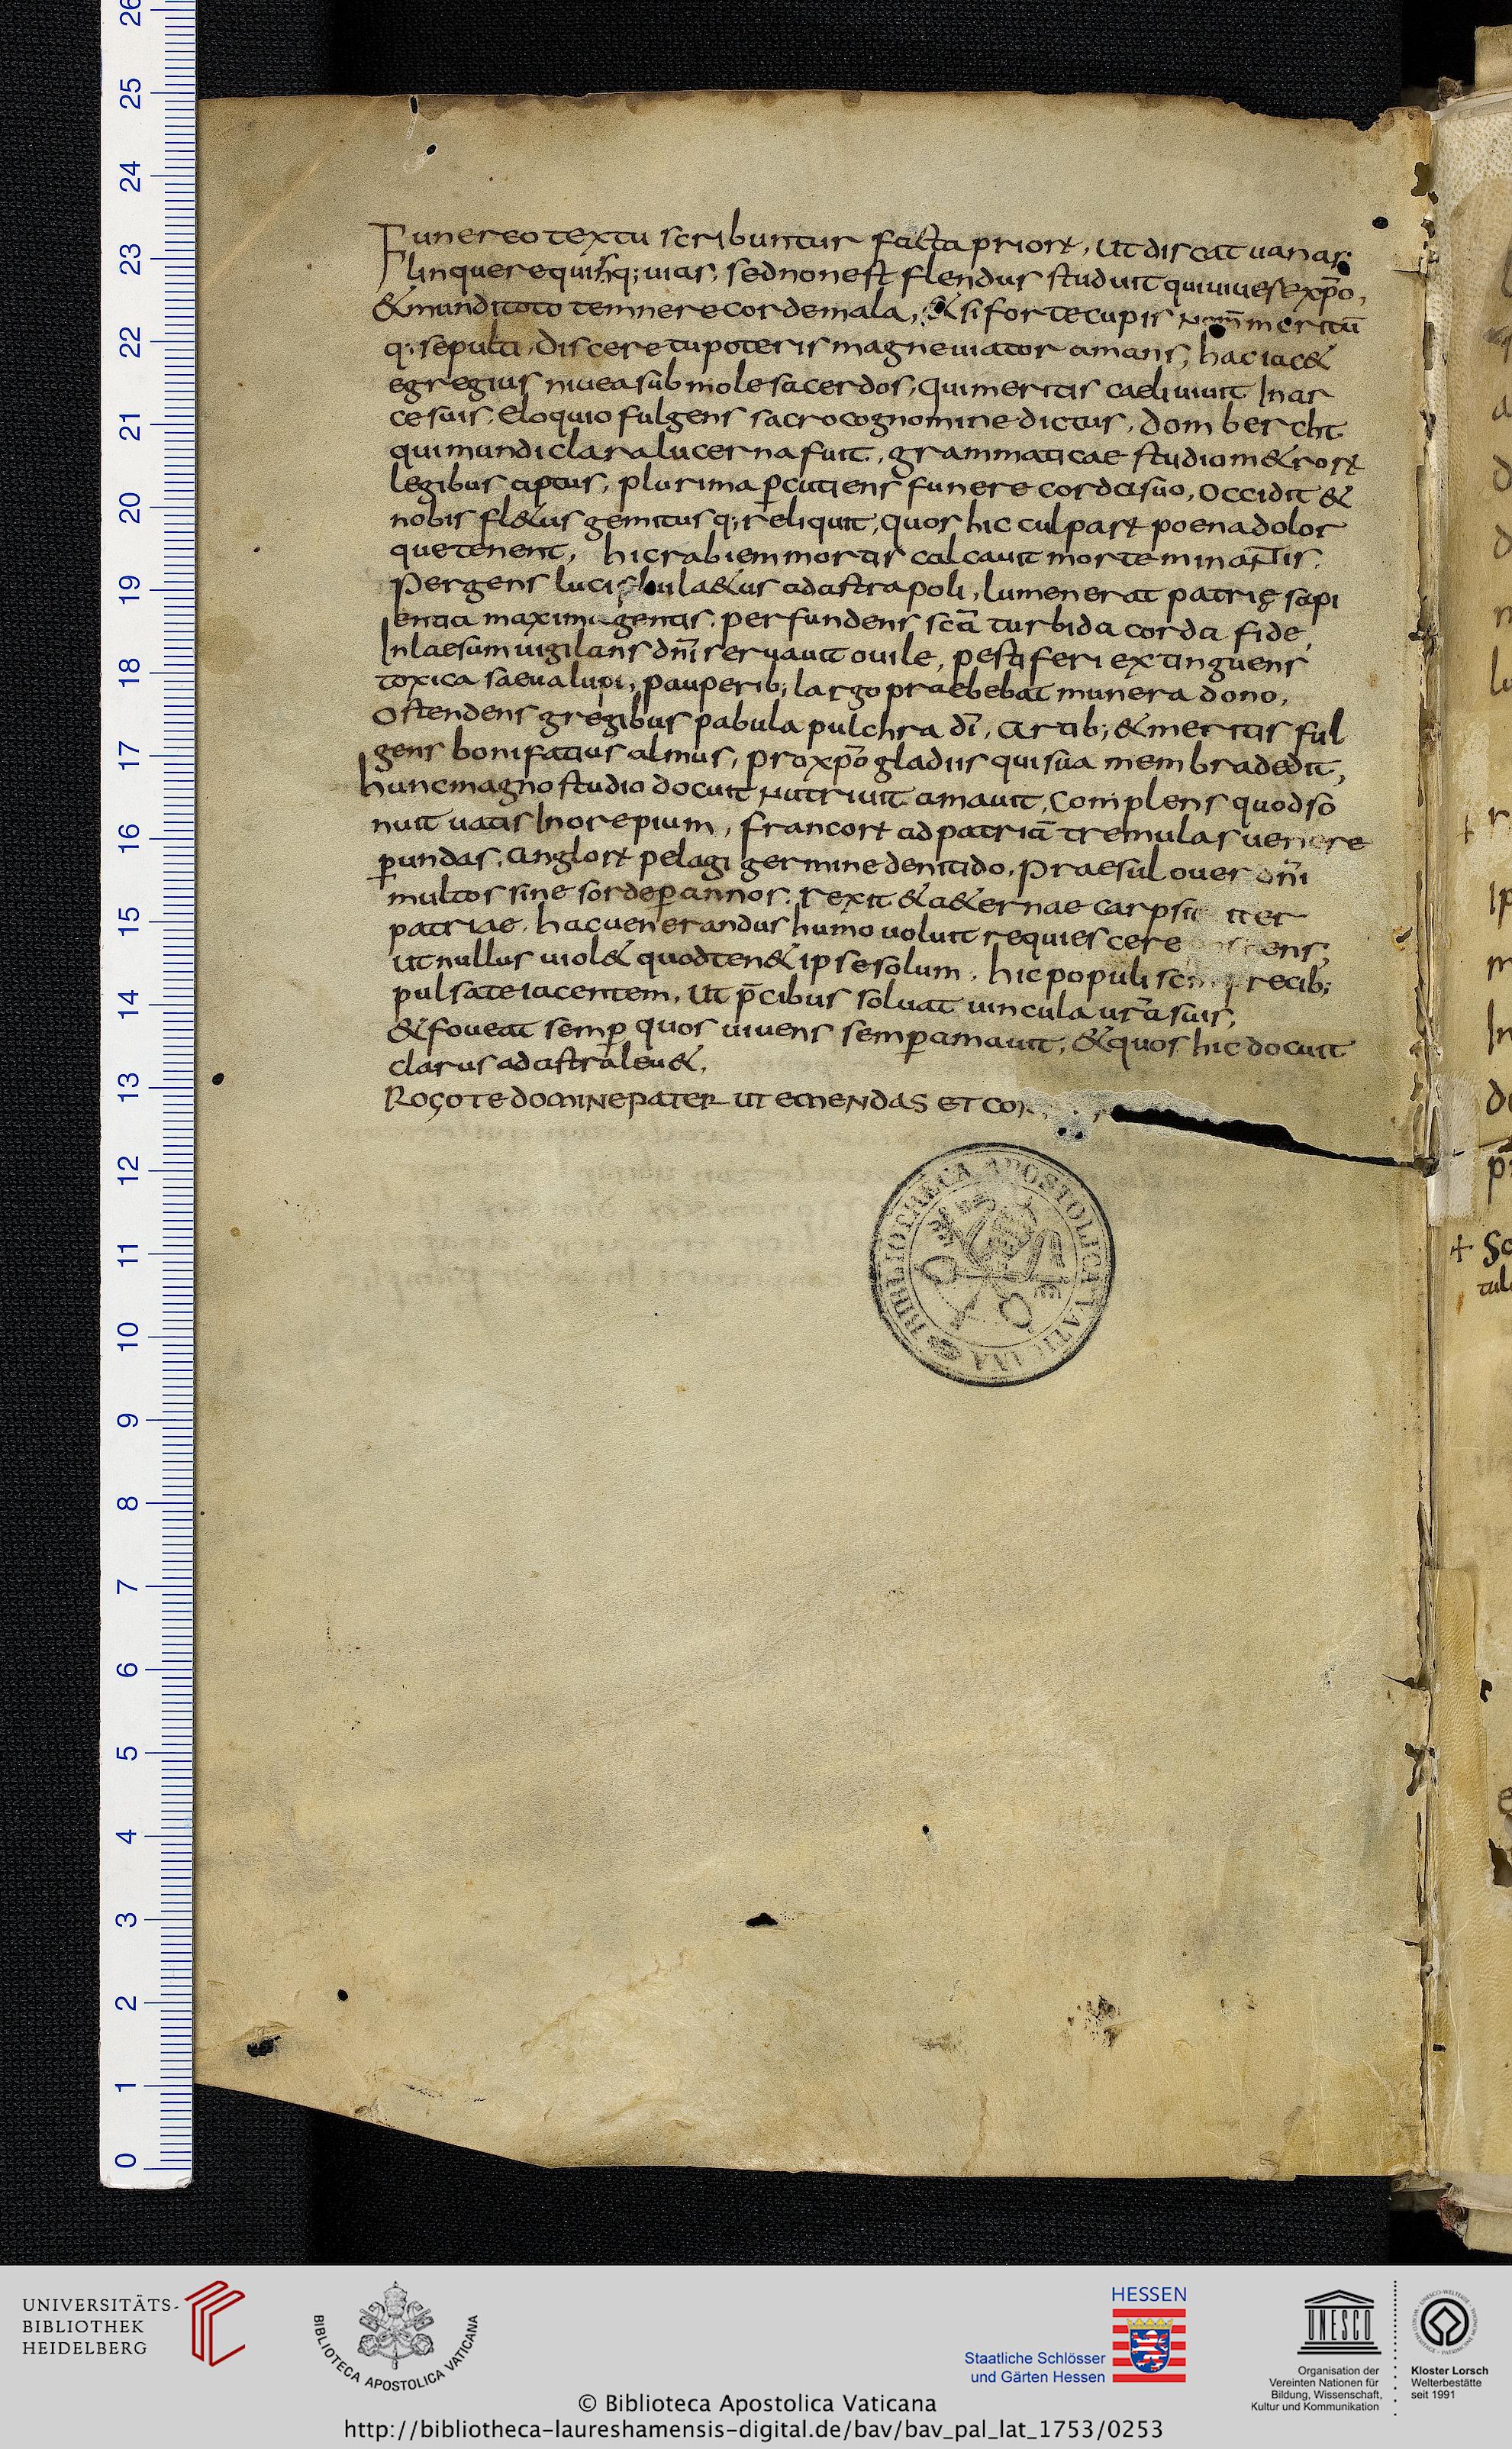 Funereo textu scribuntur facta prioꝝ, ut discat uanas
linquere quisq; uias, sed non est flendus studuit qui uiuere xp̄o,
& mundi toto temnere corde mala, & si forte cupis meritū
q; sepulti, discere tu poteris magne uiator amans, hac iac&
egregius niuea sub mole sacerdos, qui meritis caeli uiuit In ar
ce suis, Eloquio fulgens sacro cognomine dictus, dombercht
qui mundi clara lucerna fuit, grammaticae studio m&roꝝ
legibus aptus, plurima p̲cutiens funere corda suo, occidit &
nobis fl&us gemitusq; reliquit, quos hic culpaꝝ poena dolor
que tenent, hic rabiem mortis calcauit morte minantis.
Pergens luci la&us ad astra poli, lumen erat patrię sapi
entia maxima gentis, perfundens scā turbida corda fide,
Inlaesum uigilans dnī seruauit ouile, pestiferi extinguens
toxica saeua lupi, pauperib; largo praebebat munera dono,
Ostendens gregibus pabula pulchra dī, artib; & meritis ful
gens bonifatius almus, pro xp̄o gladiis qui sua membra dedit,
hunc magno studio docuit nutriuit amauit, Complens quod so
nuit uatis In ore pium, francoꝝ ad patriā tremulas uenere
p̲ undas, angloꝝ pelagi germine de nitido, Praesul oues dnī
multos sine sorde p̲ annos, rexit & a&ernae carpsit iter
patriae, hac uenerandus humo uoluit requiescere
ut nullus uiol& quod ten& ipse solum, hic populi precib;
pulsate iacentem, ut p̄cibus soluat uincula ur̄a suis,
& foueat semp̲ quos uiuens semp̲ amauit, & quos hic docuit
clarus ad astra leu&,
Roҫo te domine pater ut emendas et
BIBLIOTHECA APOSTOLICA VATICANA
26
25
24
23
22
21
20
19
18
17
16
15
14
13
12
11
10
9
8
7
6
5
4
3
2
1
0
UNIVERSITÄTS-
BIBLIOTHEK
HEIDELBERG
BIBLIOTECA APOSTOLICA VATICANA
HESSEN
Staatliche Schlösser
und Gärten Hessen
UNESCO
Organisation der
Vereinten Nationen für
Bildung, Wissenschaft,
Kultur und Kommunikation
Kloster Lorsch
Welterbestätte
seit 1991
© Biblioteca Apostolica Vaticana
http://bibliotheca-laureshamensis-digital.de/bav/bav_pal_lat_1753/0253